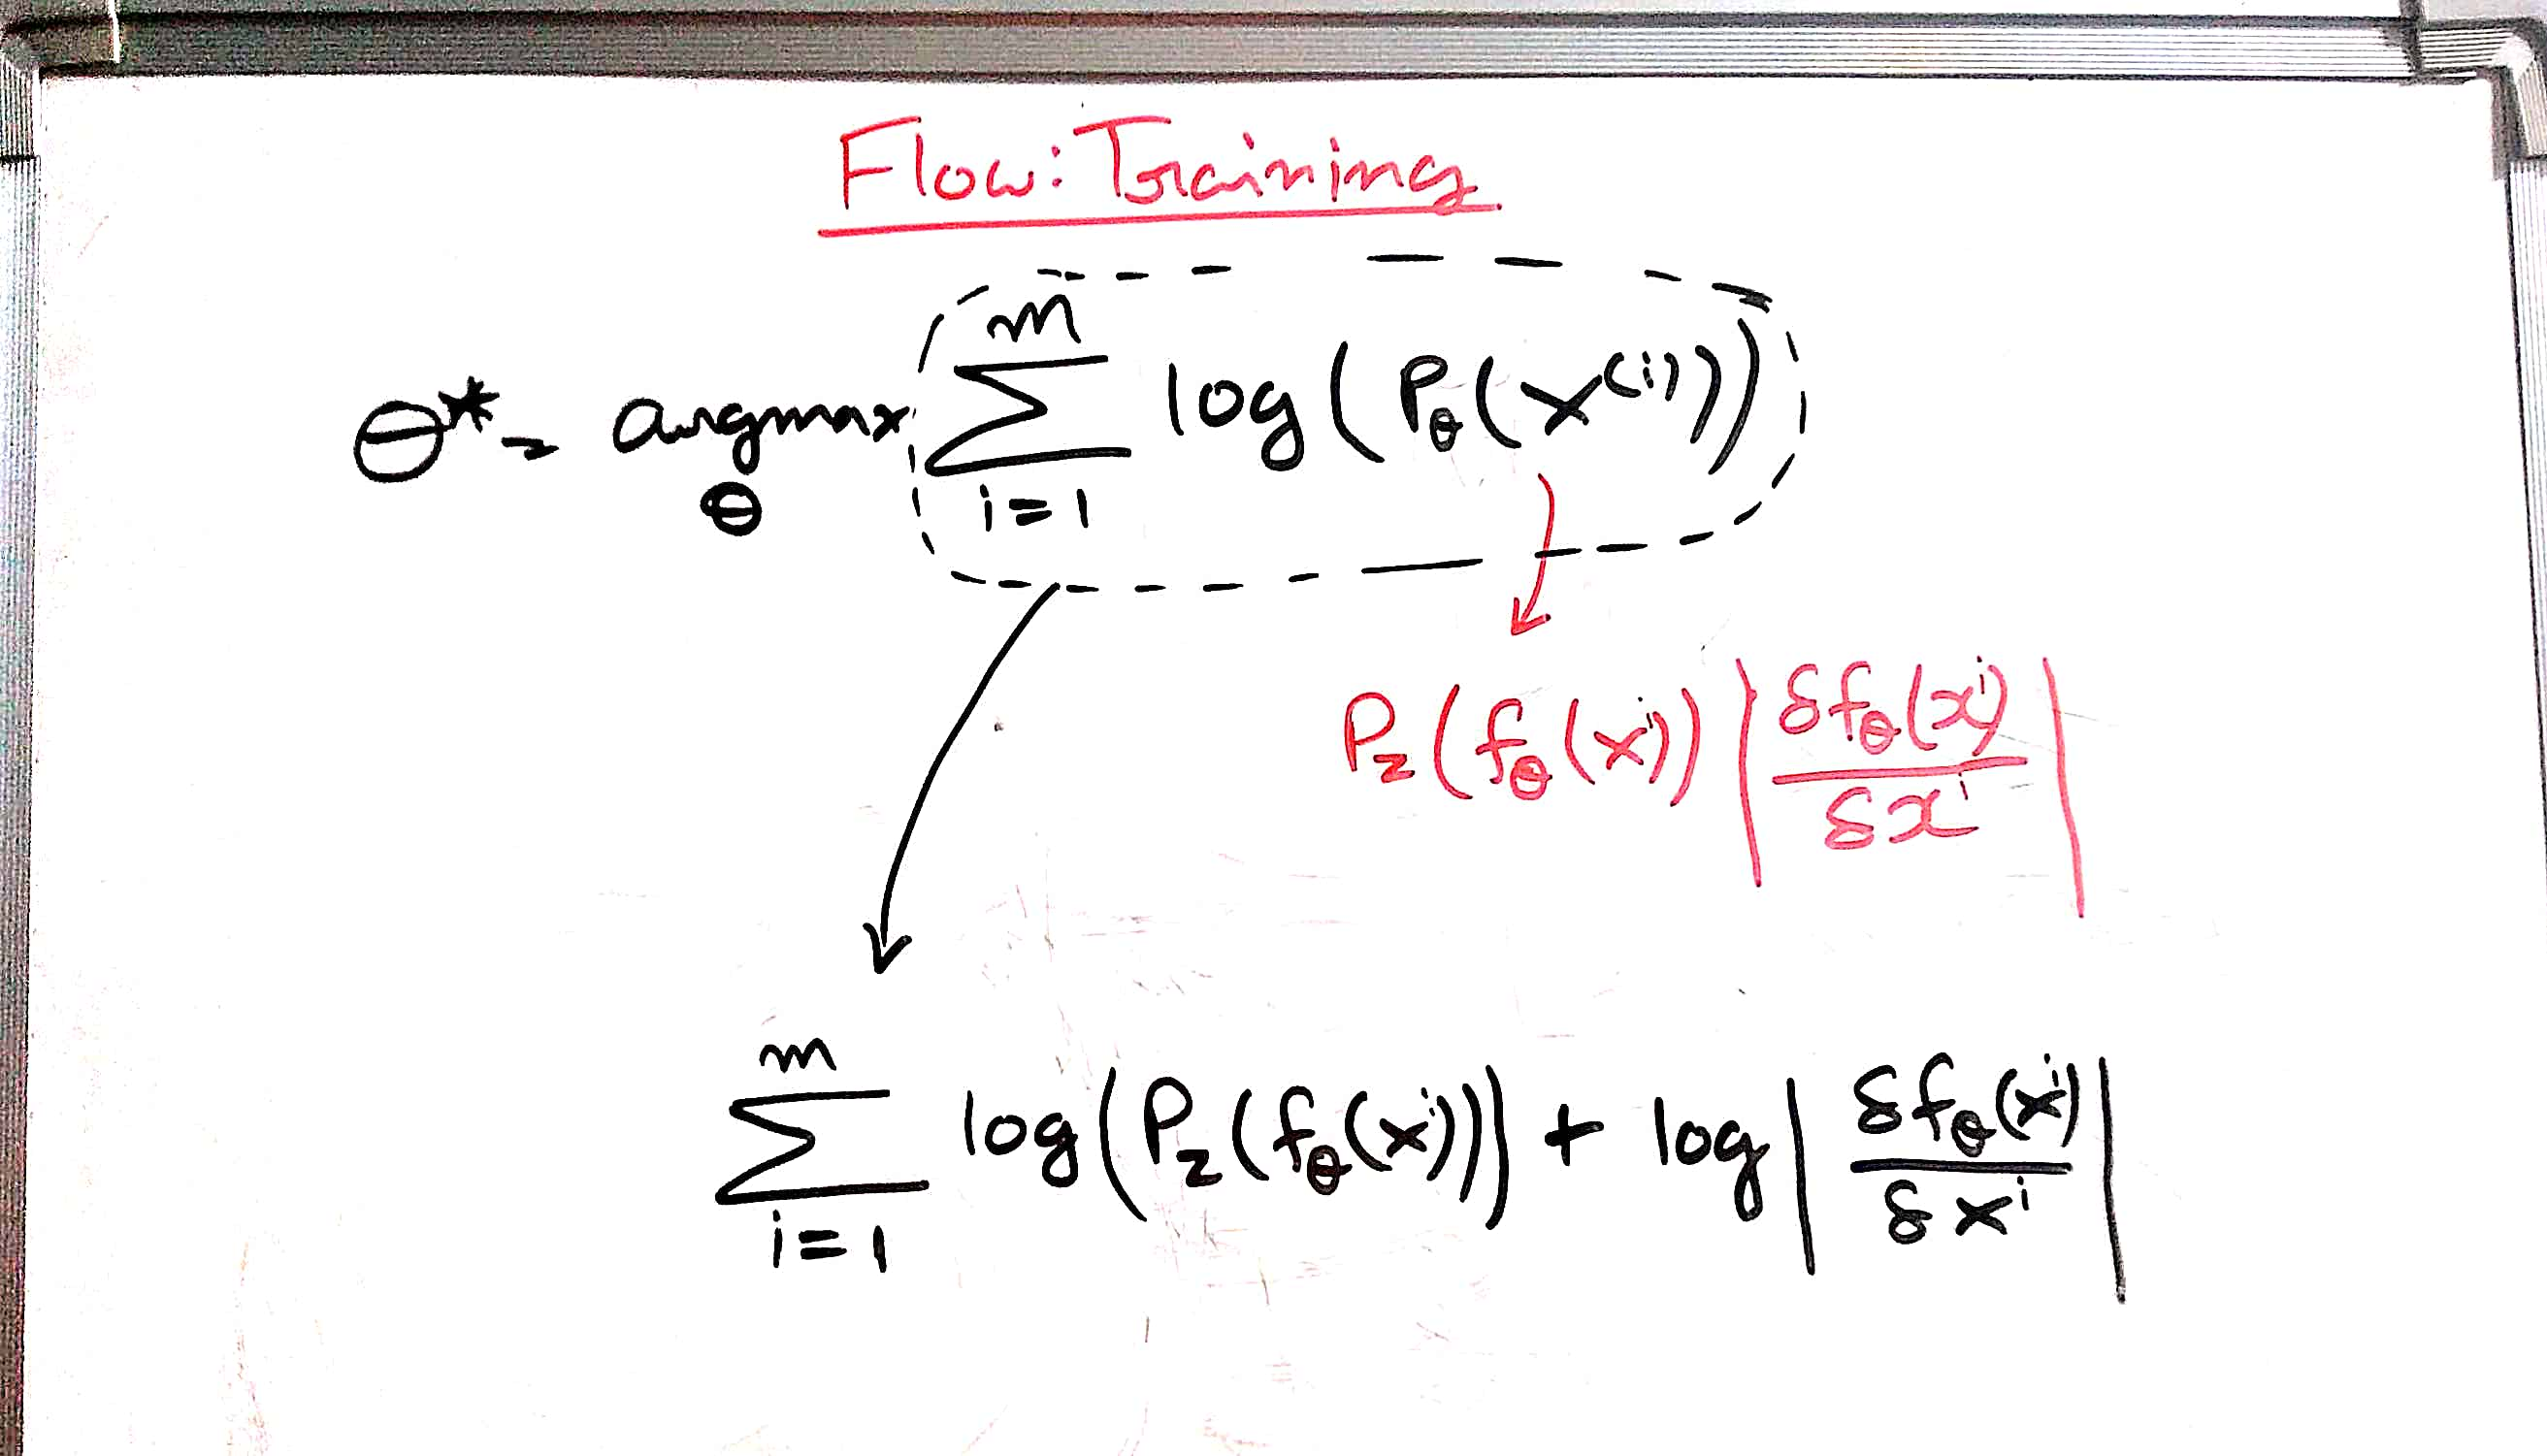 Flow: Training
θ* = argmax_θ ∑_{i=1}^{m} log(P_θ(x^{(i)}))
P_z(f_θ(x^i)) |δf_θ(x^i)/δx^i|
∑_{i=1}^{m} log(P_z(f_θ(x^i))) + log|δf_θ(x^i)/δx^i|